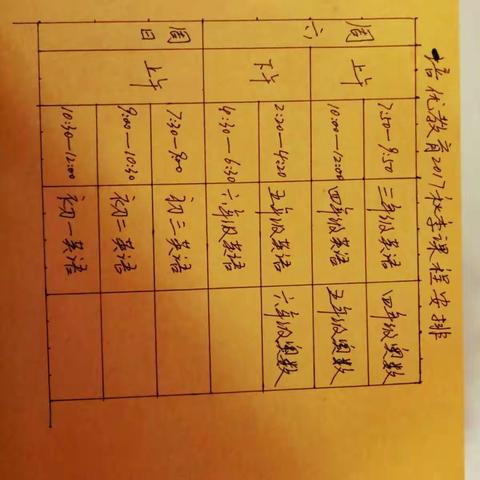 培优教育2017秋季课程安排
周六 上午 7:50—9:50 三年级英语 四年级奥数
10:00—12:00 四年级英语 五年级奥数
下午 2:20—4:20 五年级英语 六年级奥数
4:30—6:30 六年级英语
周日 上午 7:30—9:00 初三英语
9:00—10:30 初二英语
10:30—12:00 初一英语